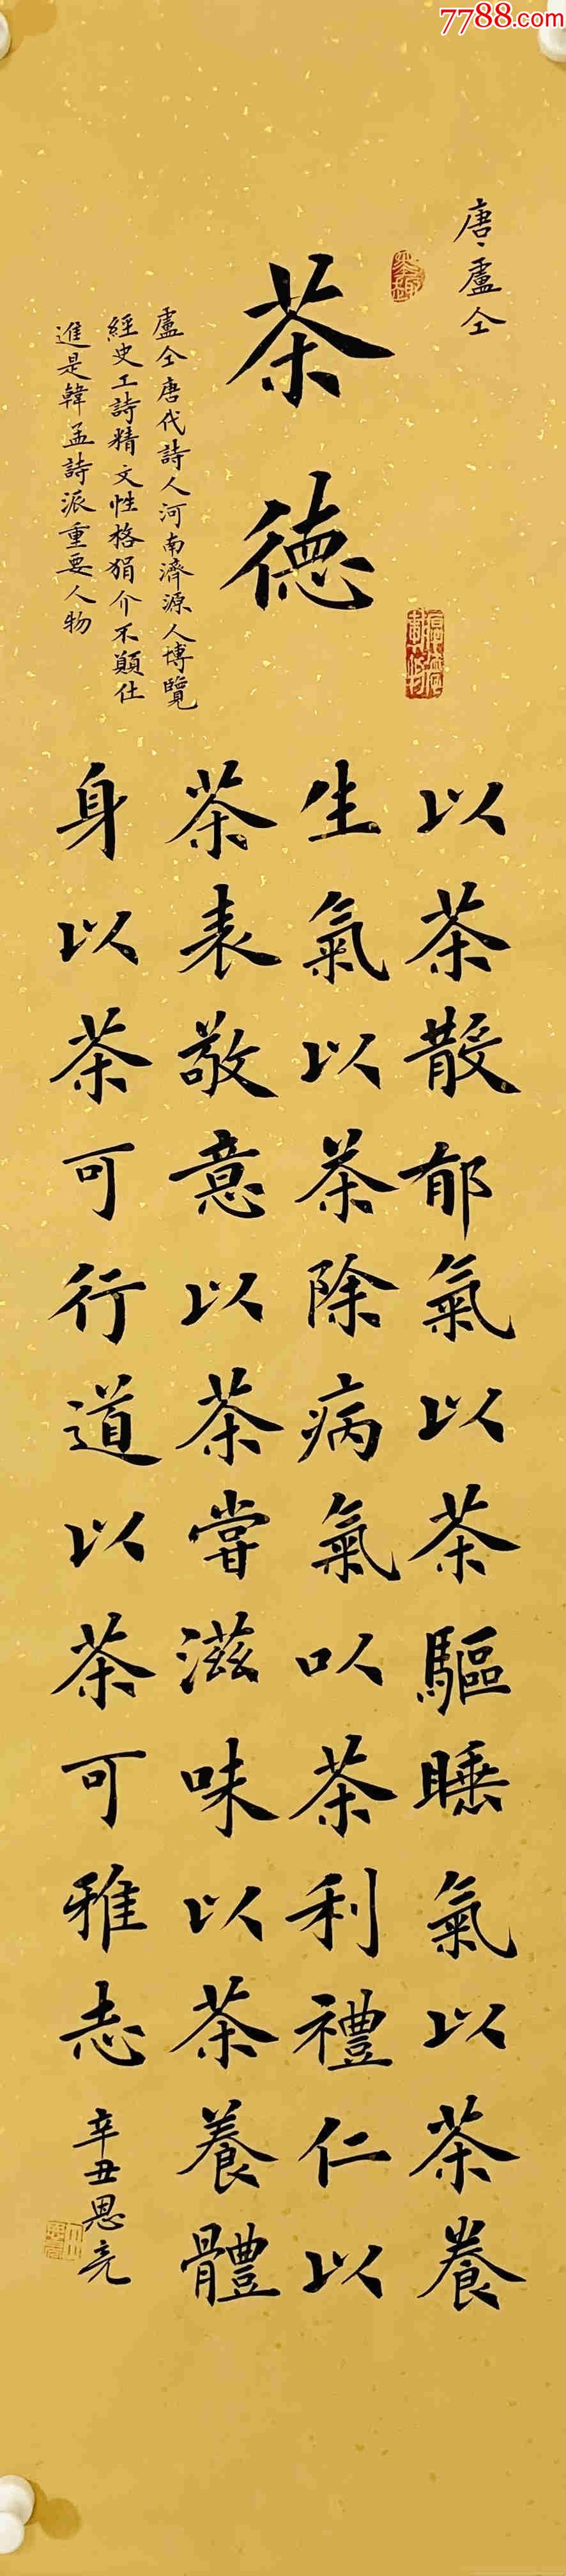 7788.com
唐、盧仝
茶德
盧仝唐代詩人河南濟源人博覽
經史工詩精文性格狷介不願仕
進是韓孟詩派重要人物
以茶散郁氣以茶驅睡氣以茶養
生氣以茶除病氣以茶利禮仁以
茶表敬意以茶嘗滋味以茶養體
身以茶可行道以茶可雅志
辛丑恩亮